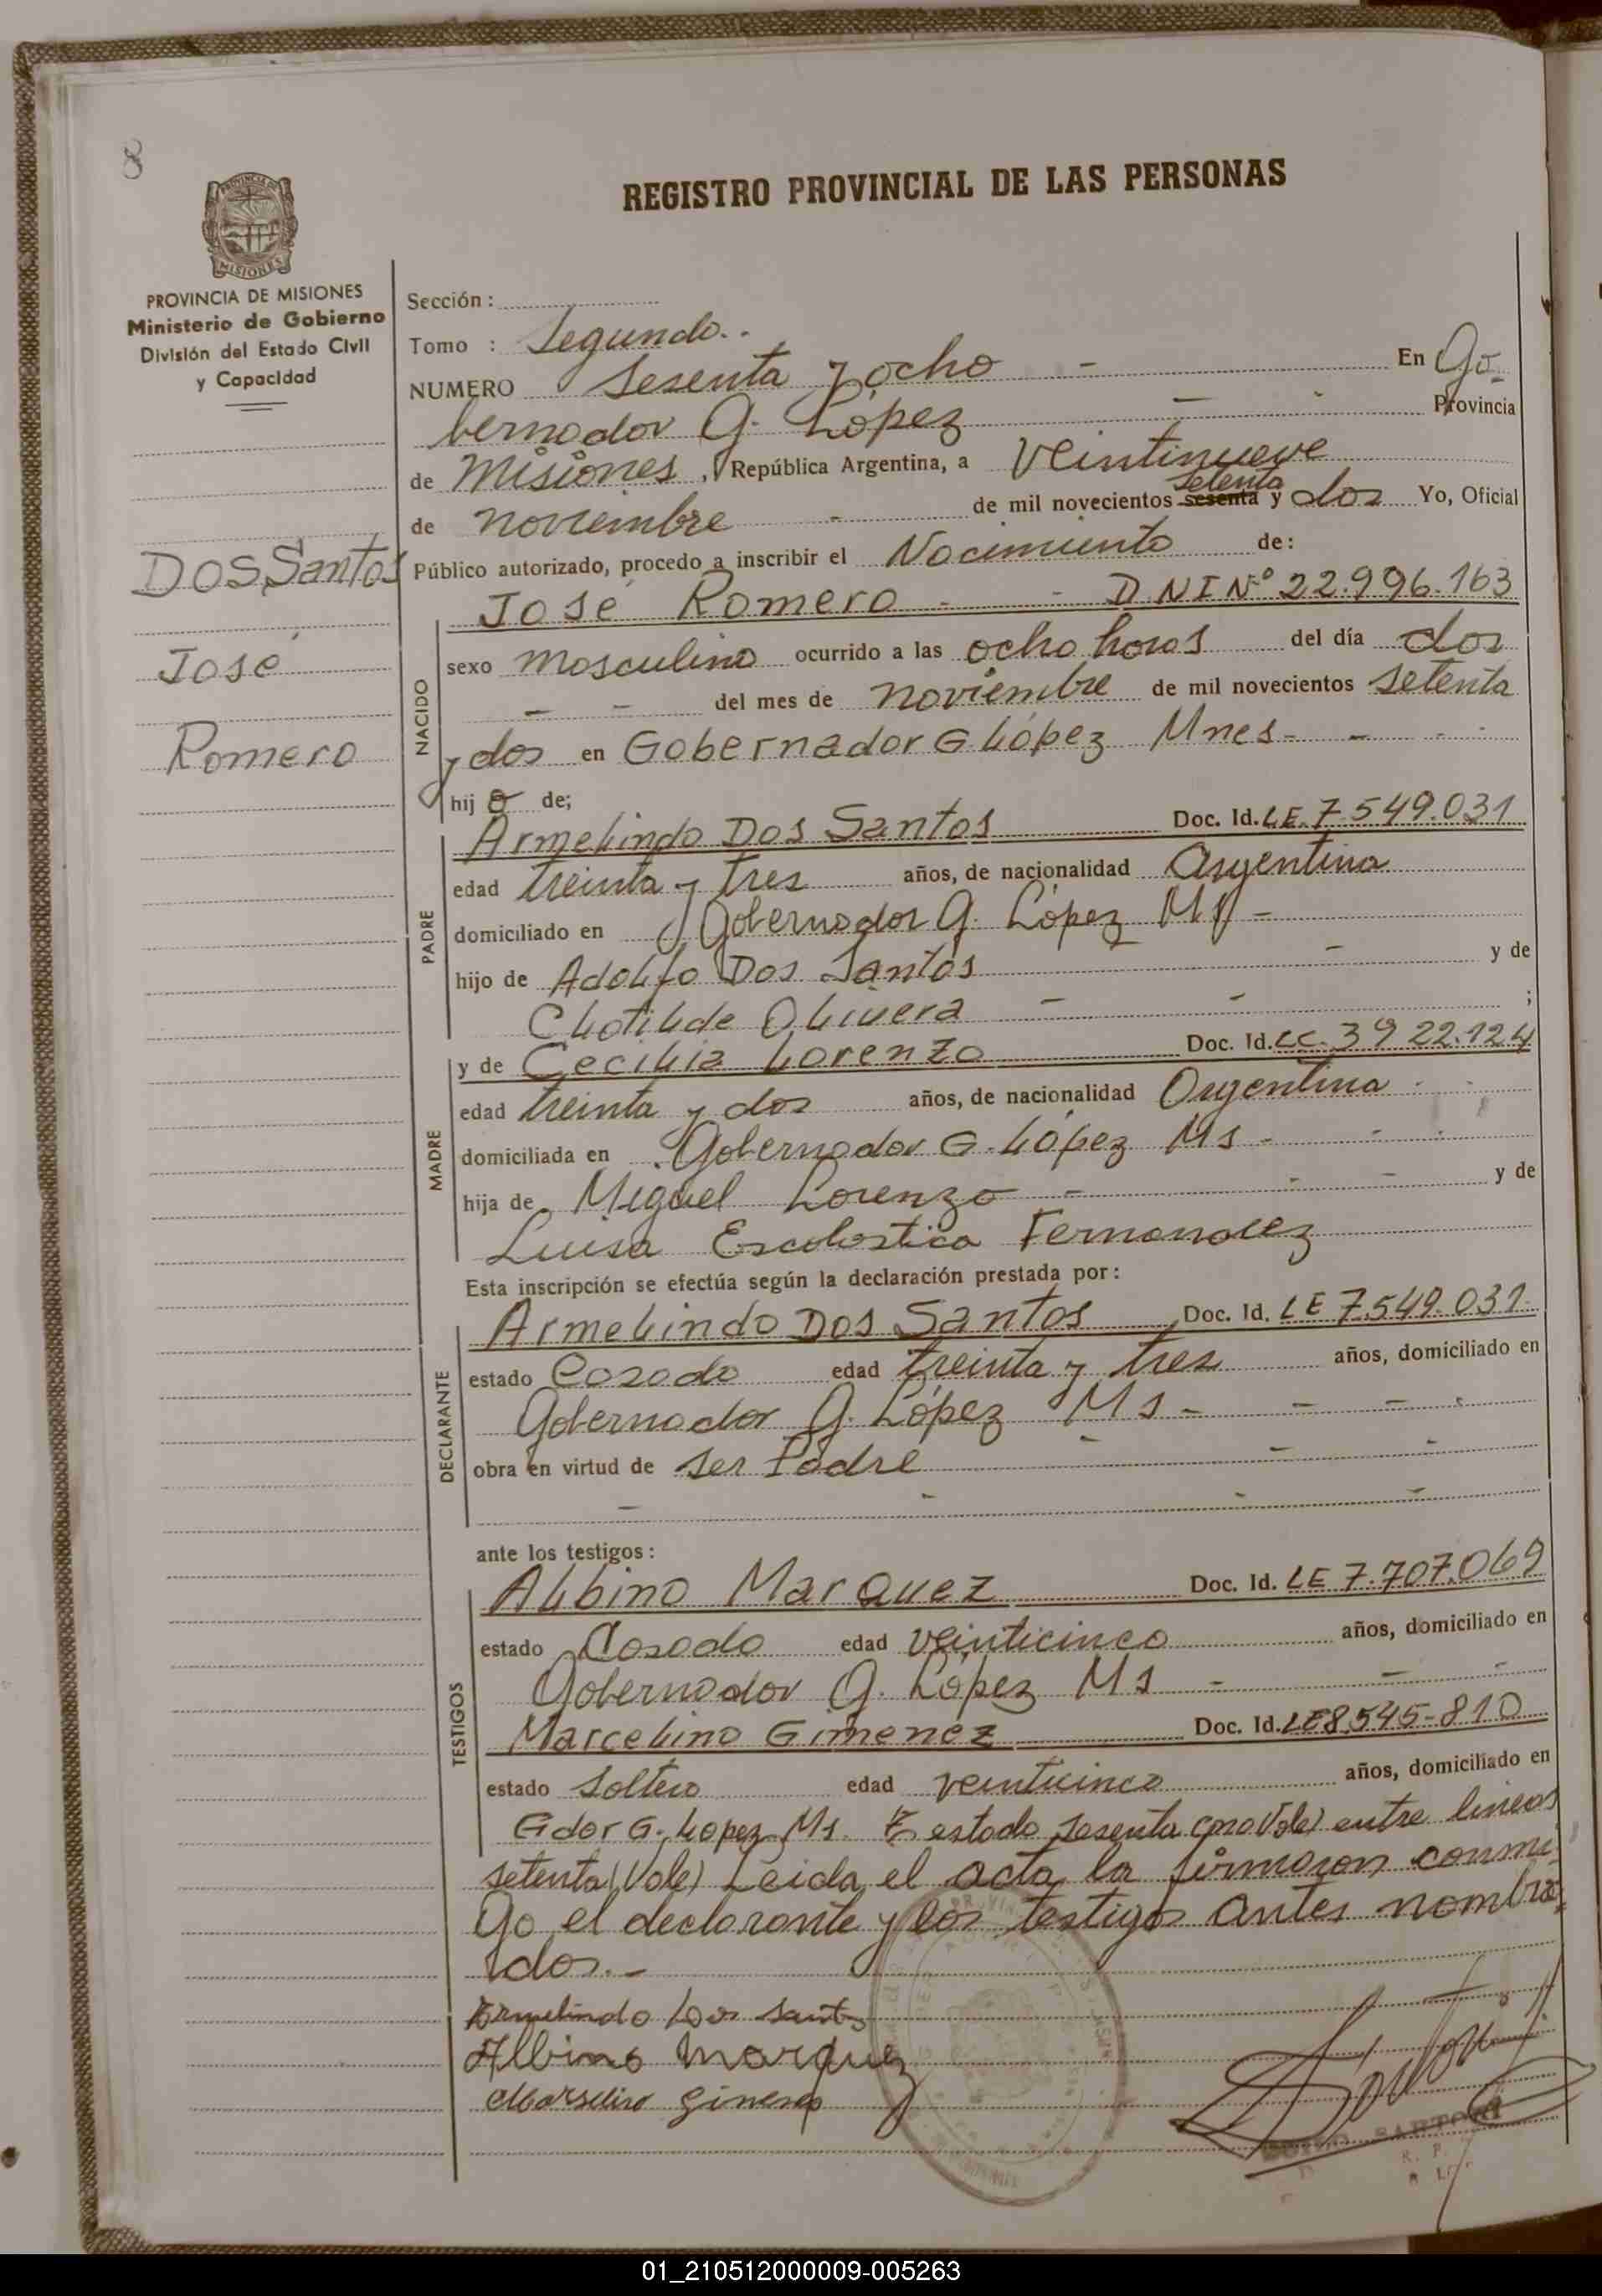 8
REGISTRO PROVINCIAL DE LAS PERSONAS
PROVINCIA DE
MISIONES
PROVINCIA DE MISIONES
Ministerio de Gobierno
División del Estado Civil
y Capacidad
Dos Santos
José
Romero
Sección :
Tomo : Segundo.-
NUMERO Sesenta y ocho - En Go-
bernador G. López - Provincia
de Misiones, República Argentina, a Veintinueve
setenta
de noviembre - de mil novecientos sesenta y dos Yo, Oficial
Público autorizado, procedo a inscribir el Nacimiento de:
José Romero - - D.N.I Nº 22.996.163
NACIDO
sexo masculino ocurrido a las ocho horas del día dos
- - del mes de noviembre de mil novecientos setenta
y dos en Gobernador G. López Mnes - - - -
hijo de;
PADRE
Armelindo Dos Santos Doc. Id. LE. 7.549.031
edad treinta y tres años, de nacionalidad Argentina
domiciliado en Gobernador G. López Ms -
hijo de Adolfo Dos Santos - y de
Clotilde Olivera - - ;
MADRE
y de Cecilia Lorenzo Doc. Id. LC. 3922.124
edad treinta y dos años, de nacionalidad Argentina
domiciliada en Gobernador G. López Ms - - -
hija de Miguel Lorenzo - - - y de
Luisa Escolastica Fernandez
Esta inscripción se efectúa según la declaración prestada por:
DECLARANTE
Armelindo Dos Santos Doc. Id. LE 7.549.031
estado Casado edad treinta y tres años, domiciliado en
Gobernador G. López Ms - - - -
obra en virtud de ser Padre - - -
- - - -
ante los testigos:
TESTIGOS
Albino Marquez Doc. Id. LE 7.707.069
estado Casado edad veinticinco años, domiciliado en
Gobernador G. López Ms - - -
Marcelino Gimenez Doc. Id. LE 8.545-810
estado soltero edad veinticinco años, domiciliado en
Gdor G. Lopez Ms. Testado sesenta (no Vale) entre lineas
setenta (Vale) Leida el acta la firmaron conmi-
go el declarante y los testigos antes nombra-
dos.-
Armelindo Dos Santos
Albino Marquez
Marselino Gimenez
SARTORI
01_210512000009-005263